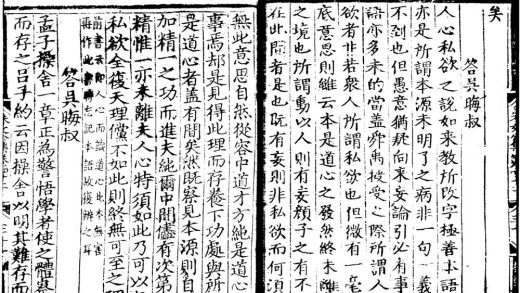 矣
答吳晦叔
人心私欲之說如來教所改字極善本語
亦是所謂本源未明了之病非一句 義
不到也但愚意猶疑向來妄論引必有事
語亦多未的當蓋舜禹授受之際所謂人
欲者非若衆人所謂私欲也但微有一毫
底意思則雖云本是道心之發然終未
之境也所謂動以人則有妄顏子之有
在此間者是也既有妄則非私欲而何須
無此意思自然從容中道才方純是道心
事焉却是見得此理而存養下功處與所
是道心者蓋有間矣然既察見本源則自
加精一之功而進夫純爾中間儘有次第
精惟一亦未離夫人心特須如此乃可以
私欲全復天理儻不如此則終無可至之
前書云即人心而識道心此本無害
再作此書時忘記本語故復辨之耳
答吳晦叔
孟子操舍一章正為警悟學者使之體察
而存之呂子約云因操舍以明其難存而